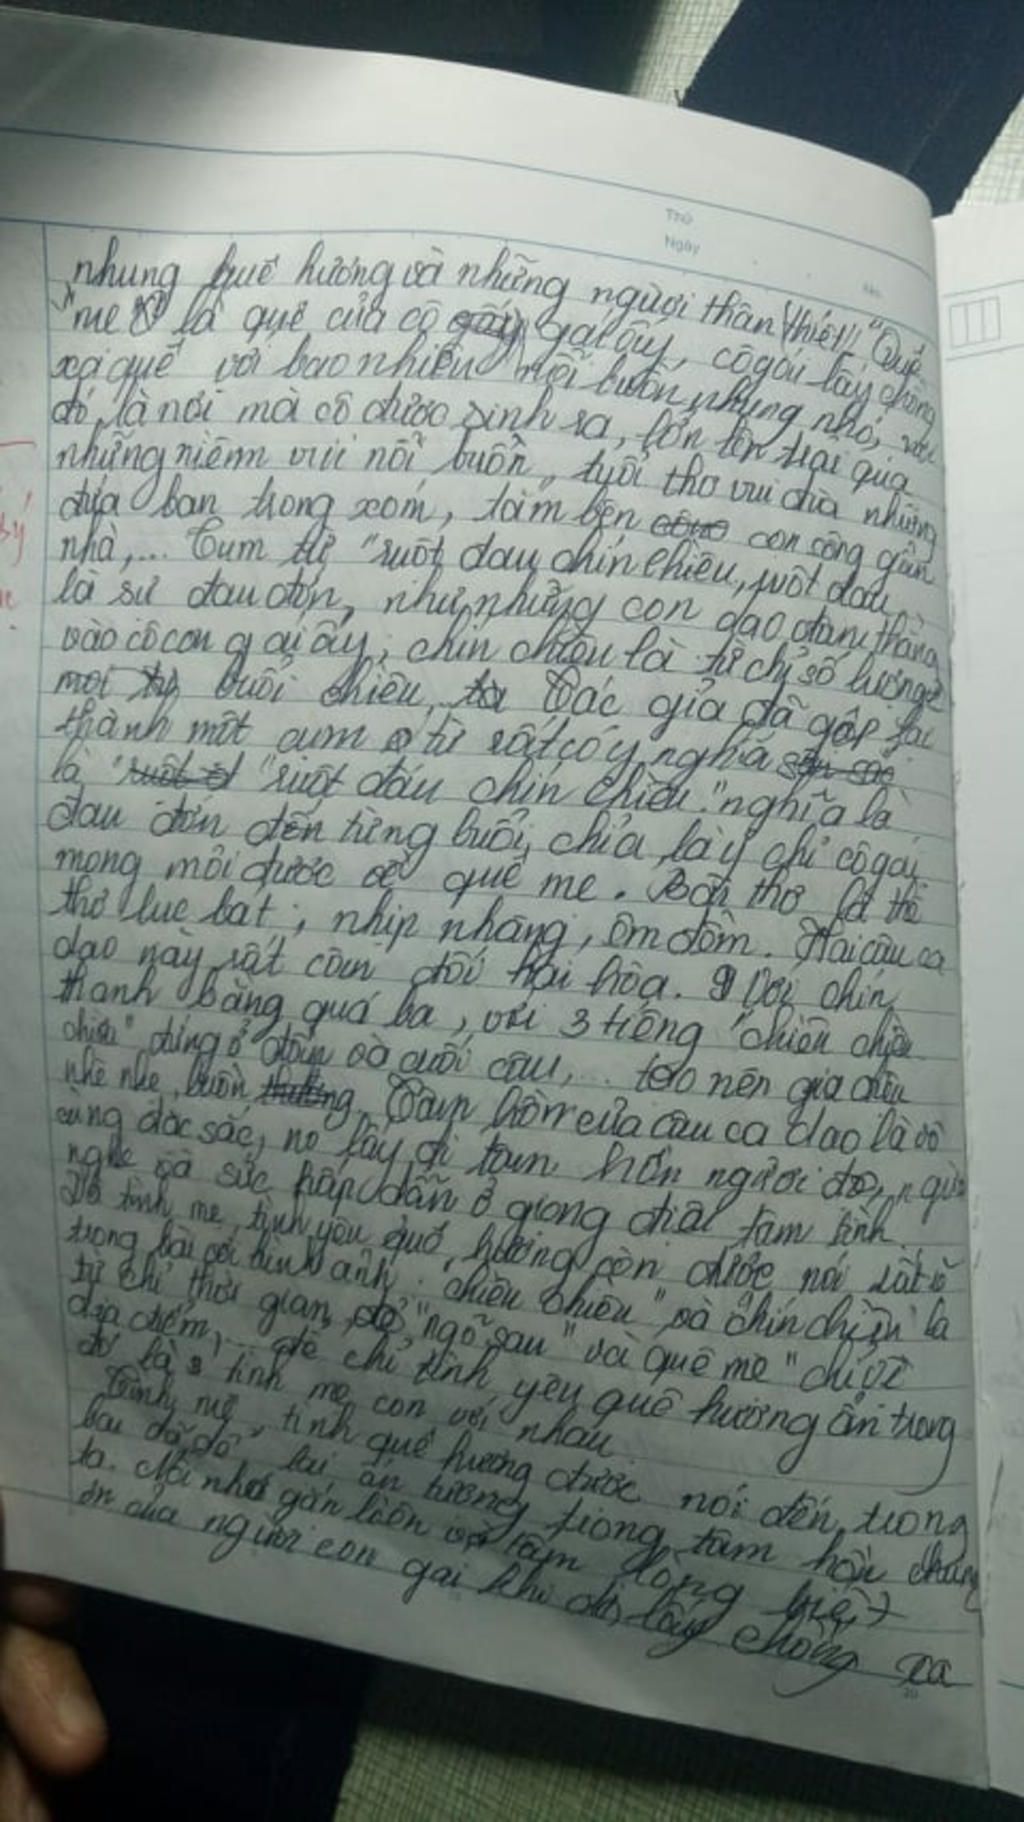 Thứ
Ngày
nhung quê hương và những người thân thiết! "Quê
mẹ" là quê của cô gái ấy, cô gái lấy chồng
xa quê với bao nhiêu nỗi buồn nhung nhớ, nơi
đó là nơi mà cô được sinh ra, lớn lên trải qua
những niềm vui nỗi buồn, tuổi thơ vui đùa những
đứa bạn trong xóm, tắm bên con sông gần
nhà,... Cụm từ "ruột đau chín chiều, ruột đau
là sự đau đớn, như những con dao đâm thẳng
vào cô con gái ấy, chín chiều là từ chỉ số lượng
mọi buổi chiều, Tác giả đã gộp lại
thành một cụm từ rất có ý nghĩa
là "ruột đau chín chiều." nghĩa là
đau đớn đến từng buổi, chìa là ý chỉ cô gái
mong mỏi được về quê mẹ. Bài thơ là thể
thơ lục bát, nhịp nhàng, êm đềm. Hai câu ca
dao này rất cân đối hài hòa. Với chín
thanh bằng quá ba, với 3 tiếng "chiều chiều
chiều" đứng ở đầu và cuối câu,... tạo nên gia điệu
nhè nhẹ, buồn Tâm hồn của câu ca dao là vô
cùng đặc sắc, nó lấy đi tâm hồn người đọc, người
nghe và sức hấp dẫn ở giọng điệu tâm tình
Và tình mẹ, tình yêu quê hương còn được nói rất rõ
trong bài với hình ảnh "chiều chiều" và "chín chiều" là
từ chỉ thời gian, "ngõ sau" và quê mẹ" chỉ về
địa điểm,... để chỉ tình yêu quê hương ẩn trong
đó là tình mẹ con với nhau
Tình mẹ, tình quê hương được nói đến trong
bài đã để lại ấn tượng trong tâm hồn chúng
ta. Nỗi nhớ gắn liền với tấm lòng biết
ơn của người con gái khi đi lấy chồng xa